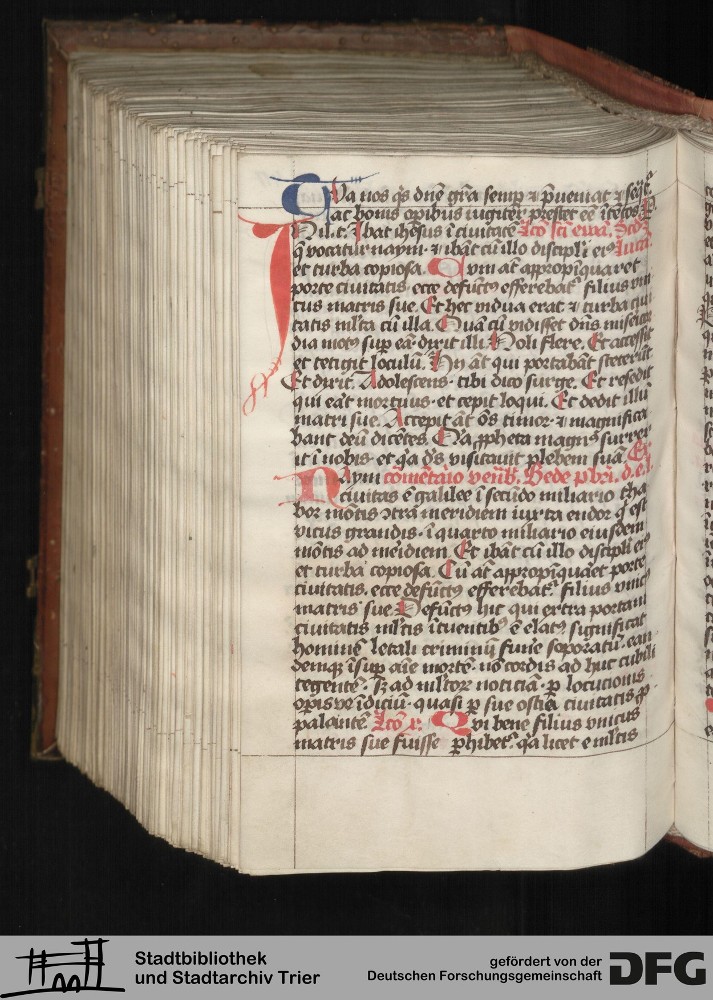 Tua nos q̄s dn̄e gr̄a semp̄ ⁊ p̄ueniat ⁊ seq̄t᷑
ac bonis opibus iugiter prestet eē ītētos
In il. t. Ibat ihesus ī ciuitatē Lc̄o sc̄i ewā. Scd̄
q̄ vocatur naym ⁊ ibāt cū illo discipl̓i eiꝰ lucā
et turba copiosa. Cum aūt appropīquaret
porte ciuitatis ecce defūctꝰ efferebat᷑ filius vni
cus matris sue. Et hec vidua erat ⁊ turba ciui
tatis ml̓ta cū illa. Quā cū vidisset dn̄s misericor
dia motꝰ sup eā dixit illi. Noli flere. Et accessit
et tetigit loculū. Hii aūt qui portabāt steterūt
Et dixit. Adolescens tibi dico surge. Et resedit
qui eāt mortuus et cepit loqui. Et dedit illū
matri sue. Accepit āt ōs timor ⁊ magnifica
bant deū dicētes. Q̄a ꝓpheta magnꝰ surrex
it ī nobis et q̄a dꝰs visitauit plebem suā. Ex
Naym comētaⁱo ven̄b. Bede pb̄ri. d. e. l.
ciuitas ē galilee ī secūdo miliario tha
bor mōtis ↄtrā meridiem iuxta endor q̄ est
vicus grandis ī quarto miliario eiusdem
mōtis ad meⁱdiem. Et ibāt cū illo discipl̓i eiꝰ
et turba copiosa. Cū aūt appropīquāet porte
ciuitatis ecce defūctꝰ efferebat᷑ filius vnicꝰ
matris sue Defūctꝰ hic qui extra portam
ciuitatis ml̓tis ītuentibꝰ ē elatꝰ significat
hominē letali criminū fune soporatū ean
demꝗ īsup aīe mortē nō cordis ad huc cubili
tegentē. Sꝫ ad ml̓tor noticiā ꝑ locucionis
opis ve īdiciū quasi ꝑ sue ostia ciuitatis ꝓ
palantē Lc̄o Qui bene filius vnicus
matris sue fuisse ꝑhibet᷑ q̄a licet e ml̓tis
Stadtbibliothek
und Stadtarchiv Trier
gefördert von der
Deutschen Forschungsgemeinschaft
DFG